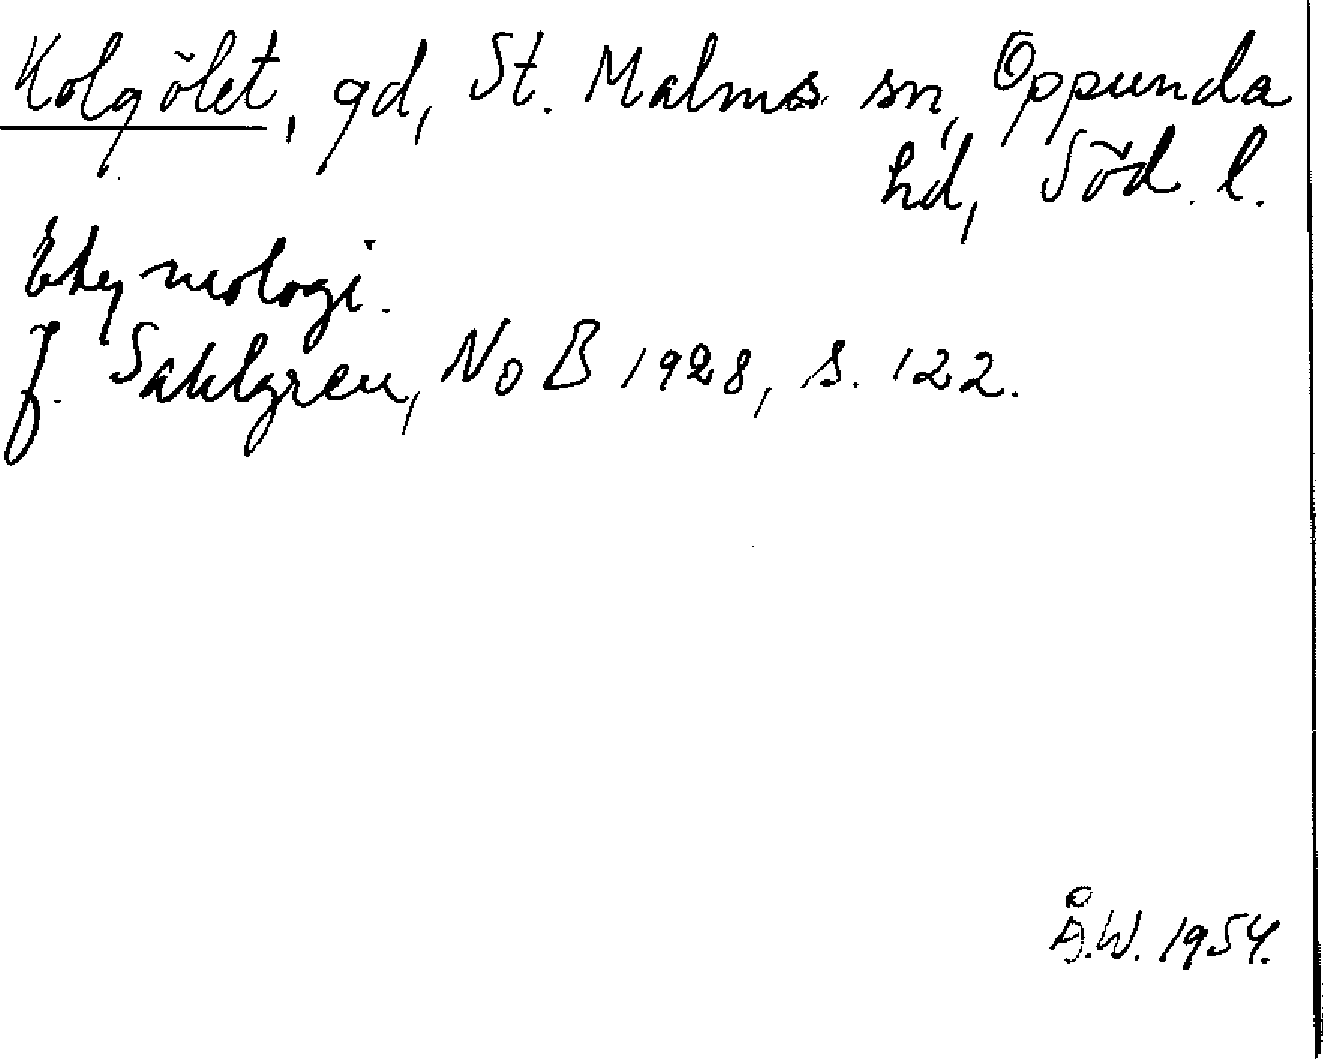 Kolgölet, gd, St. Malms sn, Oppunda
hd, Söd. l.
Etymologi.
J. Sahlgren, NoB 1928, s. 122.
Å.W. 1954.